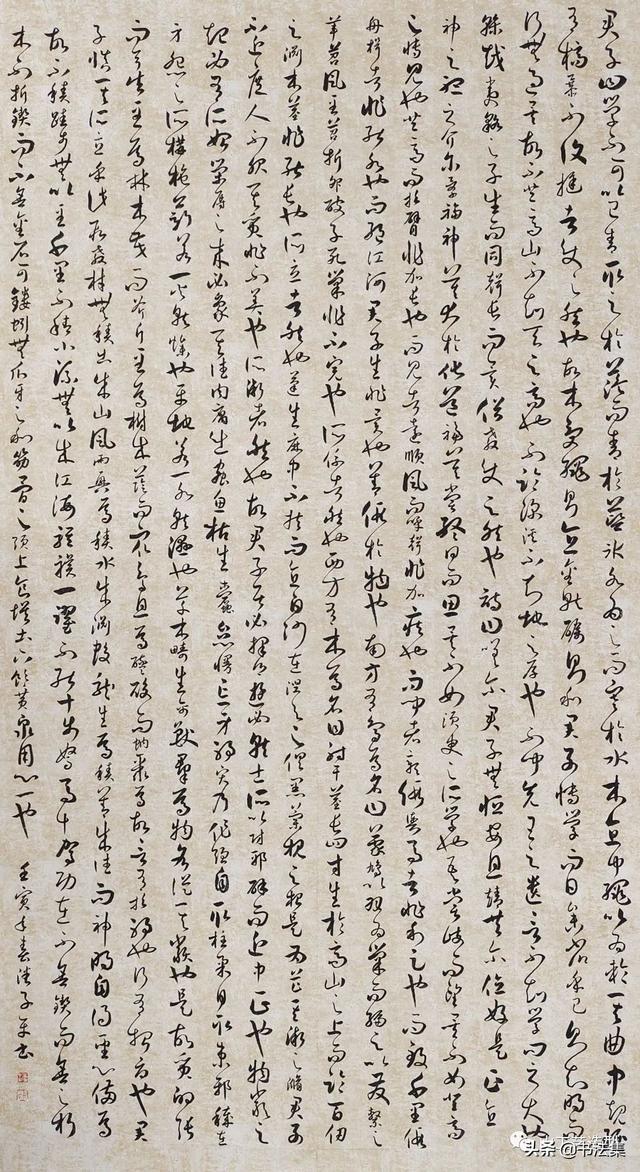 君子曰學不可以已青取之於藍而青於藍冰水為之而寒於水木直中繩以為輪其曲中規雖
有槁暴不復挺者使之然也故木受繩則直金就礪則利君子博學而日參省乎己則知明而
行無過矣故不登高山不知天之高也不臨深溪不知地之厚也不聞先王之遺言不知學問之大也
越夷貉之子生而同聲長而異俗教使之然也詩曰嗟爾君子無恒安息靖共爾位好是正直
神之聽之介爾景福神莫大於化道福莫嘗終日而思矣不如須臾之所學也吾嘗跂而望矣不如登高
之博見也登高而招臂非加長也而見者遠順風而呼聲非加疾也而聞者彰假輿馬者非利足也而致千里假
舟楫者非能水也而絕江河君子生非異也善假於物也南方有鳥焉名曰蒙鳩以羽為巢而編之以髮繫之
葦苕風至苕折卵破子死巢非不完也所繫者然也西方有木焉名曰射干莖長四寸生於高山之上而臨百仞
之淵木莖非能長也所立者然也蓬生麻中不扶而直白沙在涅與之俱黑蘭槐之根是為芷其漸之滫君子
不近庶人不服其質非不美也所漸者然也故君子居必擇鄉遊必就士所以防邪辟而近中正也物類之
起必有所始榮辱之來必象其德肉腐生蟲魚枯生蠹怠慢忘身禍災乃作強自取柱柔自取束邪穢在
身怨之所構施薪若一火就燥也平地若一水就濕也草木疇生禽獸群焉物各從其類也是故質的張
而弓矢至焉林木茂而斧斤至焉樹木蔭而眾鳥息焉醯酸而蚋聚焉故言有招禍也行有招辱也君
子慎其所立乎積土成山風雨興焉積水成淵蛟龍生焉積善成德而神明自得聖心備焉
故不積蹞步無以至千里不積小流無以成江海騏驥一躍不能十步駑馬十駕功在不舍鍥而舍之朽
木不折鍥而不舍金石可鏤螾無爪牙之利筋骨之強上食埃土下飲黃泉用心一也 壬寅年春子平書
头条 @书法集